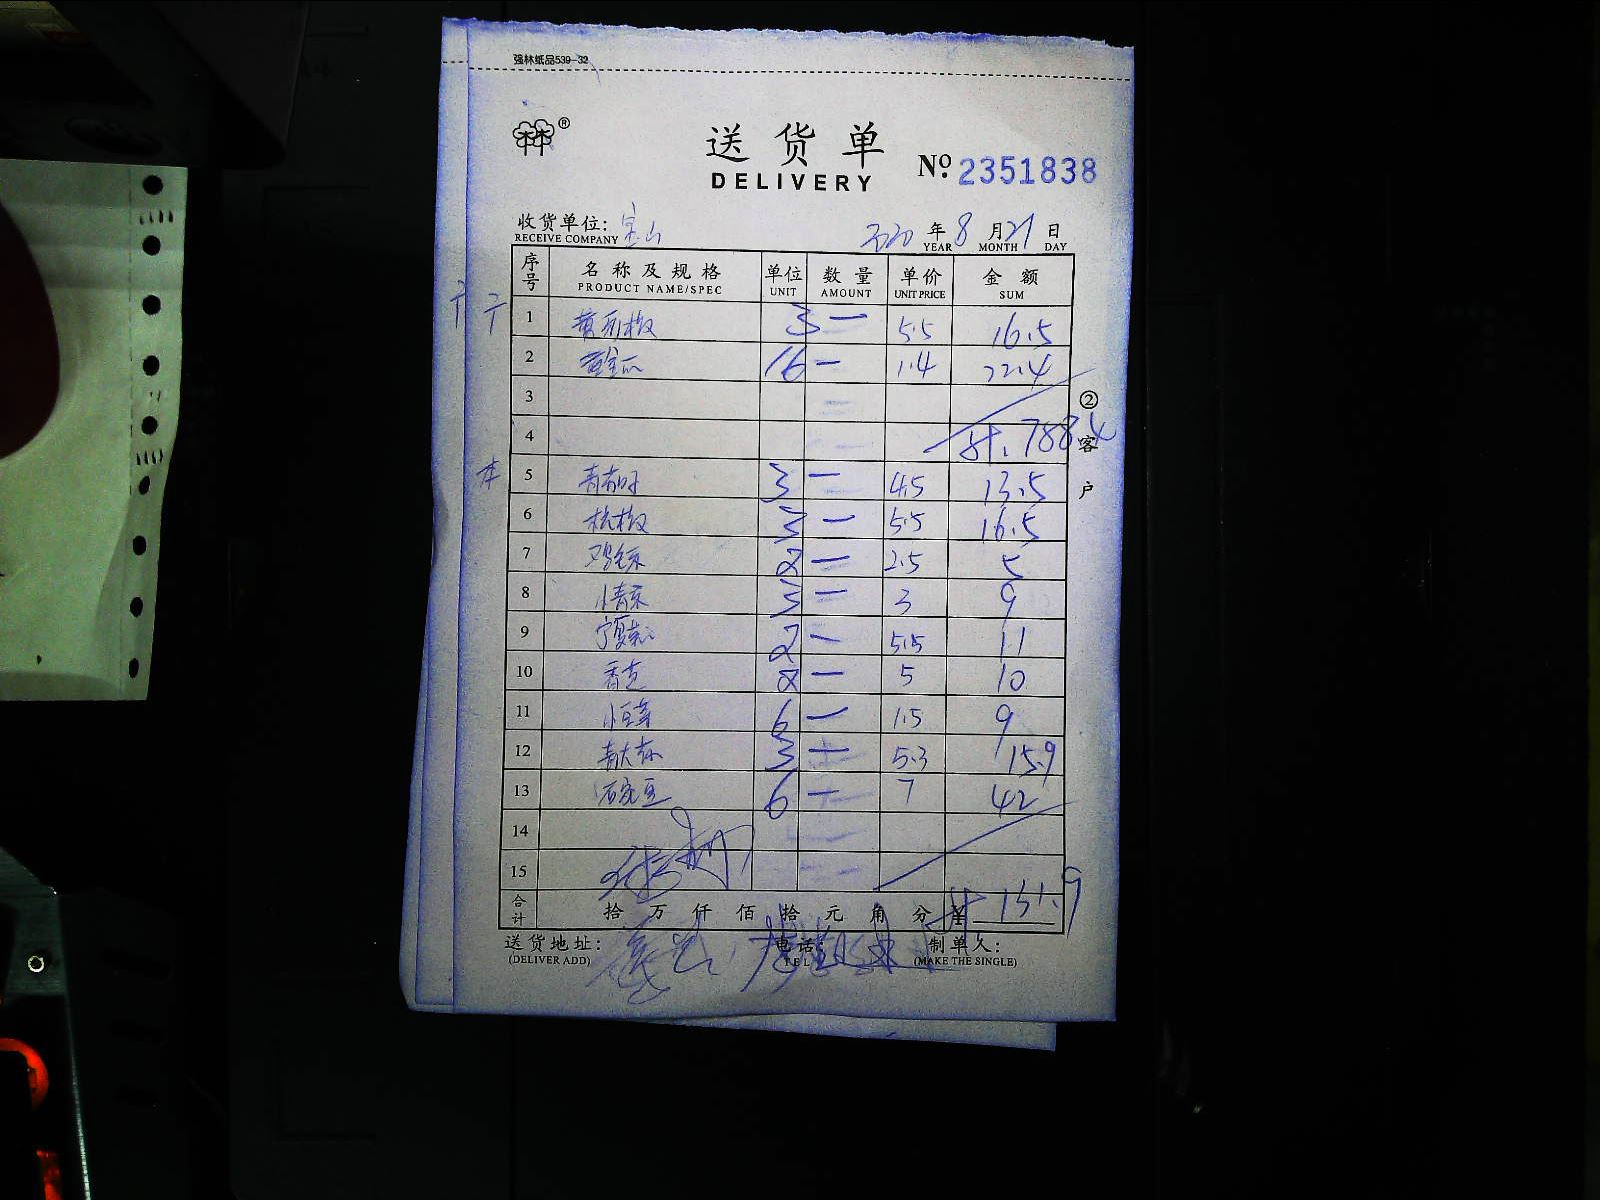 强林纸品539-32
®
送货单
DELIVERY
Nº 2351838
收货单位: 宝山
RECEIVE COMPANY
2020 年 8 月 21 日
YEAR MONTH DAY
序号 名称及规格 单位 数量 单价 金额
PRODUCT NAME/SPEC UNIT AMOUNT UNIT PRICE SUM
1 3 一 5.5 16.5
2 黄金瓜 16 一 1.4 22.4
3
4 计. 788.4
本 5 3 一 4.5 13.5
6 杭椒 3 一 5.5 16.5
7 鸡毛菜 2 一 2.5 5
8 小青菜 3 一 3 9
9 2 一 5.5 11
10 香芹 2 一 5 10
11 小豆芽 6 一 1.5 9
12 3 一 5.3 15.9
13 6 一 7 42
14
15
合计 拾 万 仟 佰 拾 元 角 分 ¥ 计 131.9
送货地址: 电话: 制单人:
(DELIVER ADD) TEL (MAKE THE SINGLE)
②客户